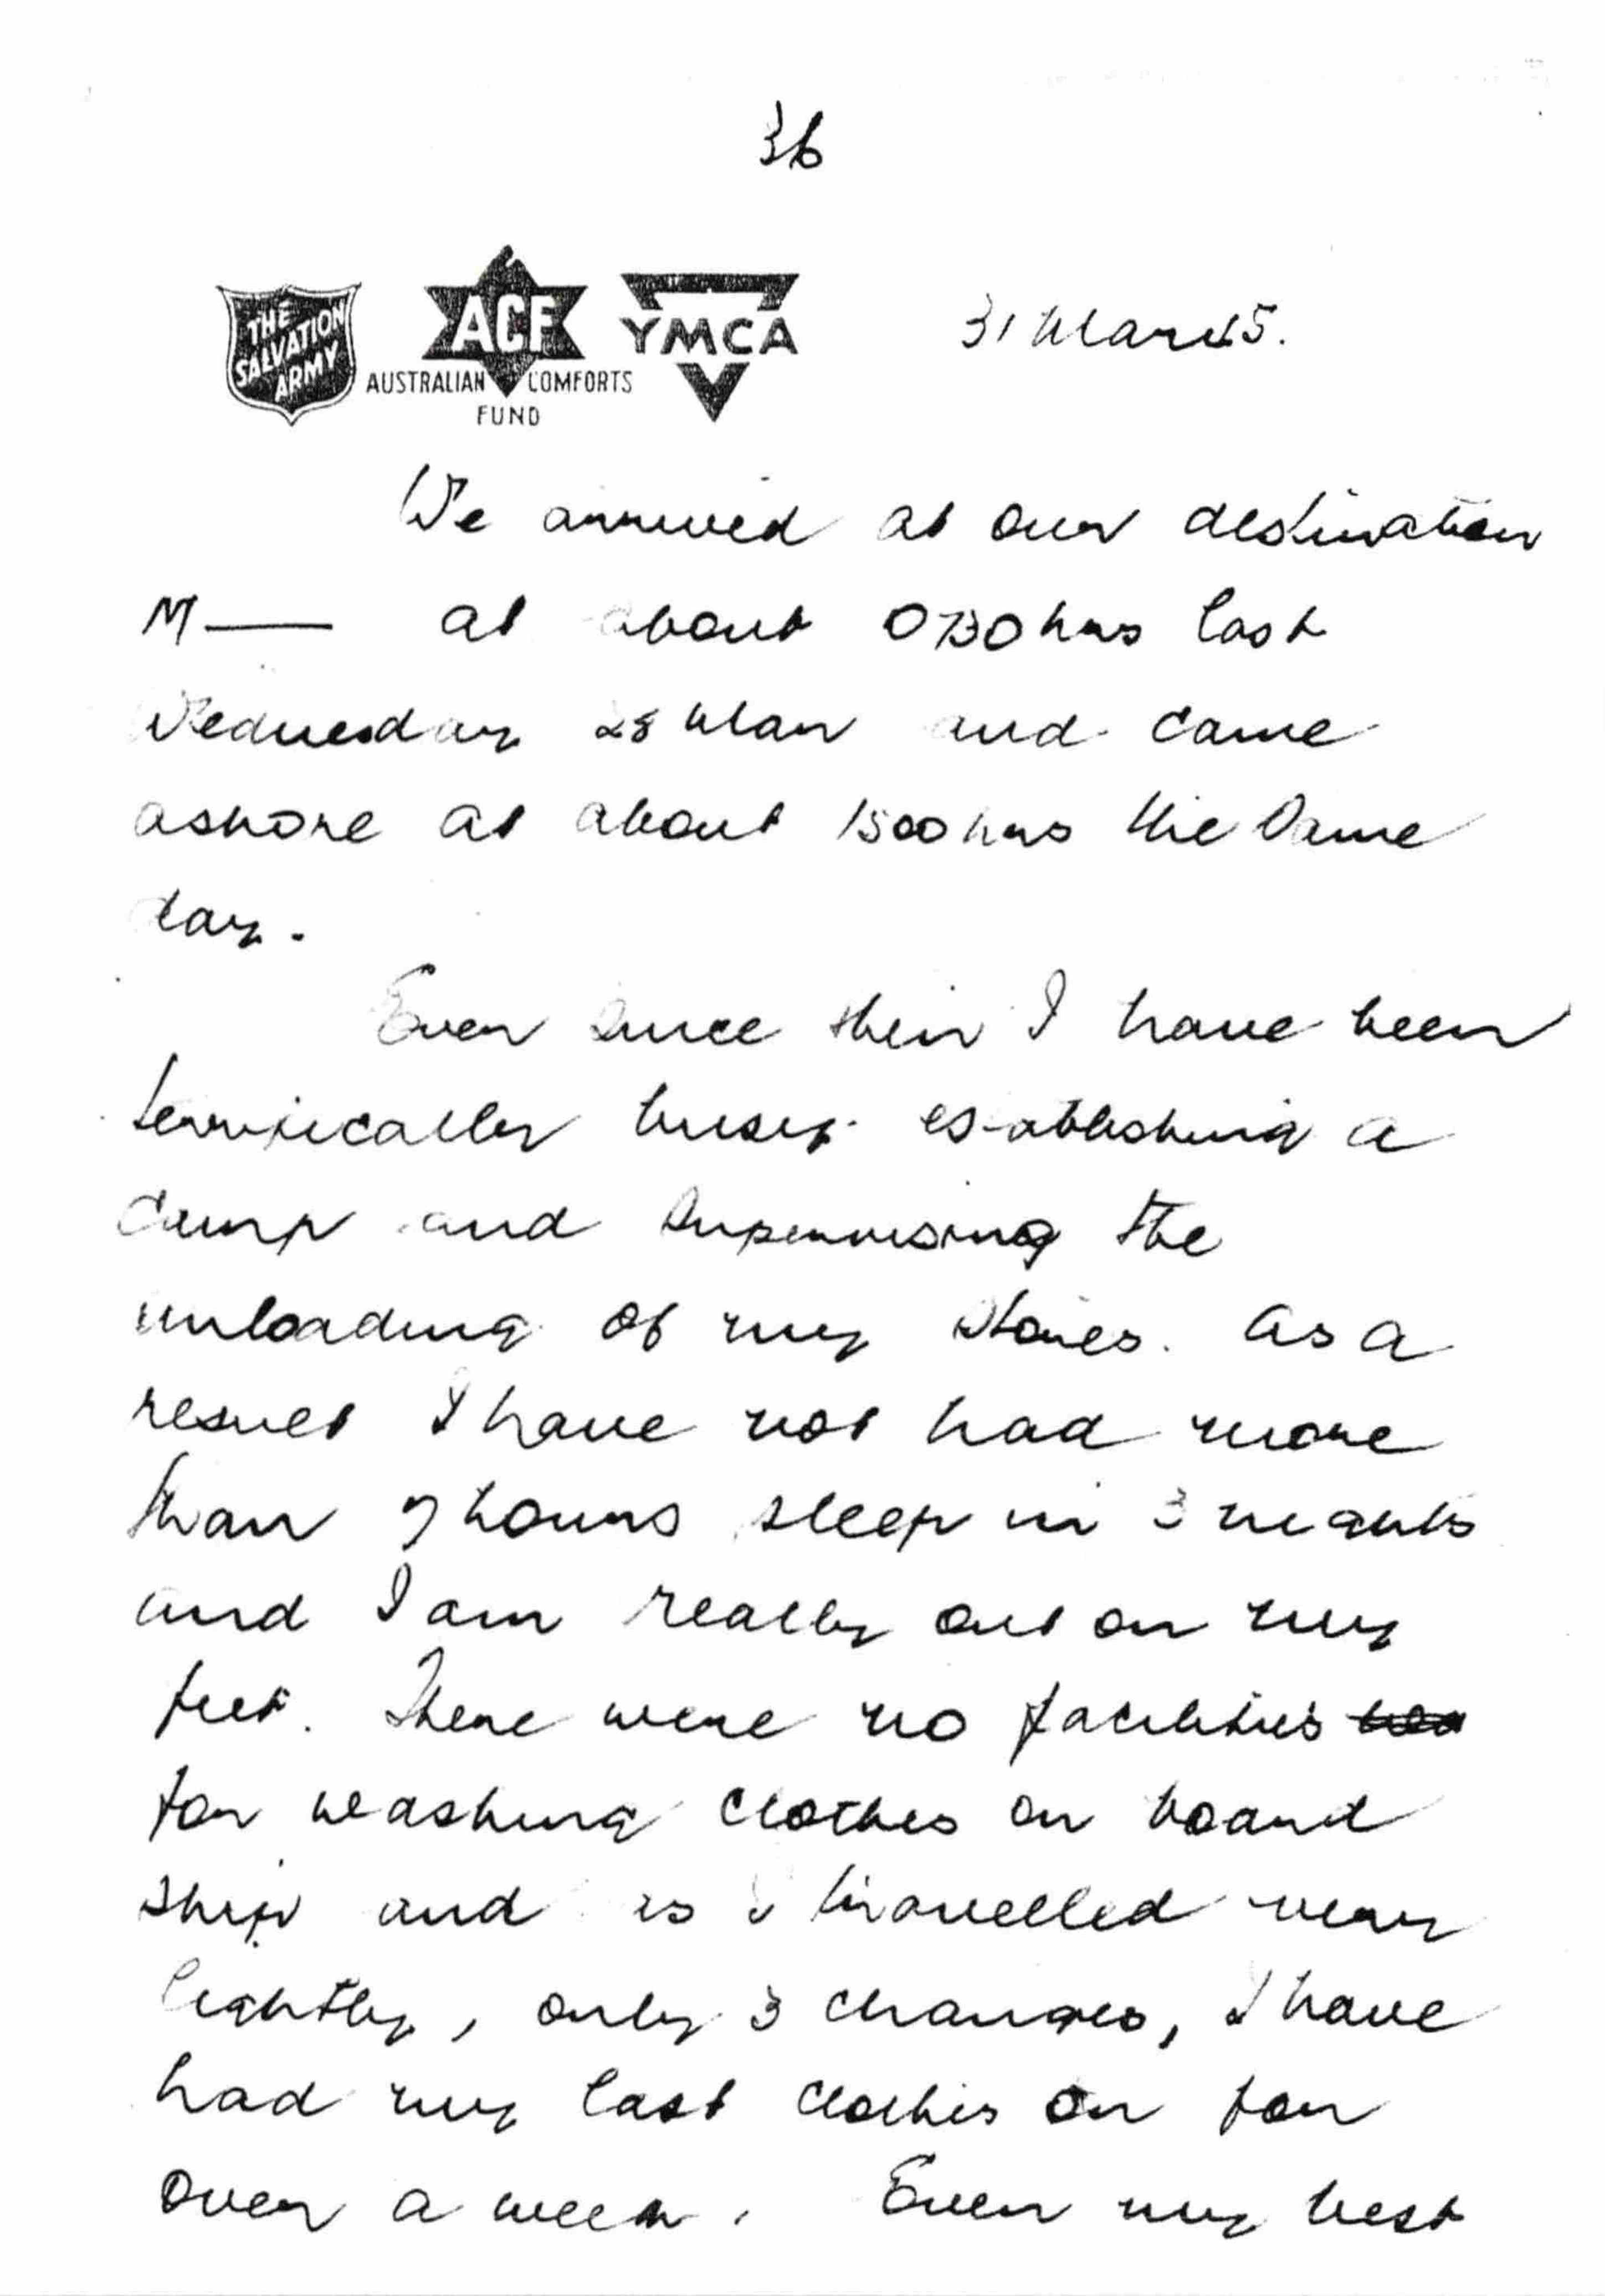 36
THE SALVATION ARMY
ACF
AUSTRALIAN COMFORTS
FUND
YMCA
31 Mar 45.
We arrived at our destination
M— at about 0730 hrs last
Wednesday 28 Mar and came
ashore at about 1500 hrs the same
day.
Ever since then I have been
terrifically busy establishing a
camp and supervising the
unloading of my stores. As a
result I have not had more
than 7 hours sleep in 3 nights
and I am really out on my
feet. There were no facilities
for washing clothes on board
ship and as I travelled very
lightly, only 3 changes, I have
had my last clothes on for
over a week. Even my best